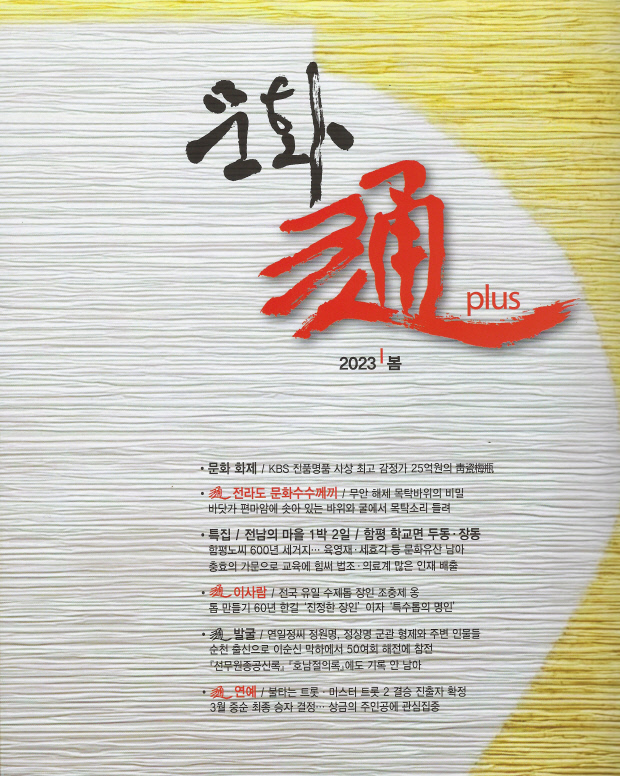 문화
通
plus
2023 | 봄
• 문화 화제 / KBS 진품명품 사상 최고 감정가 25억원의 靑瓷梅瓶
• 通 전라도 문화수수께끼 / 무안 해제 목탁바위의 비밀
바닷가 편마암에 솟아 있는 바위와 굴에서 목탁소리 들려
• 특집 / 전남의 마을 1박 2일 / 함평 학교면 두동·장동
함평노씨 600년 세거지… 육영재·세효각 등 문화유산 남아
충효의 가문으로 교육에 힘써 법조·의료계 많은 인재 배출
• 通 이사람 / 전국 유일 수제톱 장인 조충제 옹
톱 만들기 60년 한길 '진정한 장인' 이자 '특수톱의 명인'
• 通 발굴 / 연일정씨 정원명, 정상명 군관 형제와 주변 인물들
순천 출신으로 이순신 막하에서 50여회 해전에 참정
『선무원종공신록』『호남절의록』에도 기록 안 남아
• 通 연예 / 불타는 트롯·미스터 트롯 2 결승 진출자 확정
3월 중순 최종 승자 결정… 상금의 주인공에 관심집중